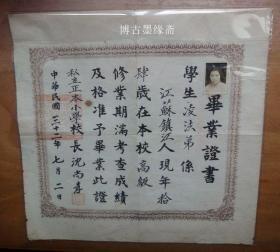 博古墨缘斋
畢業證書
學生凌法弟係
江蘇鎮江人現年拾
肆歲在本校高級
修業期滿考查成績
及格准予畢業此證
私立正本小學校長沈尚彦
中華民國三十二年七月二日